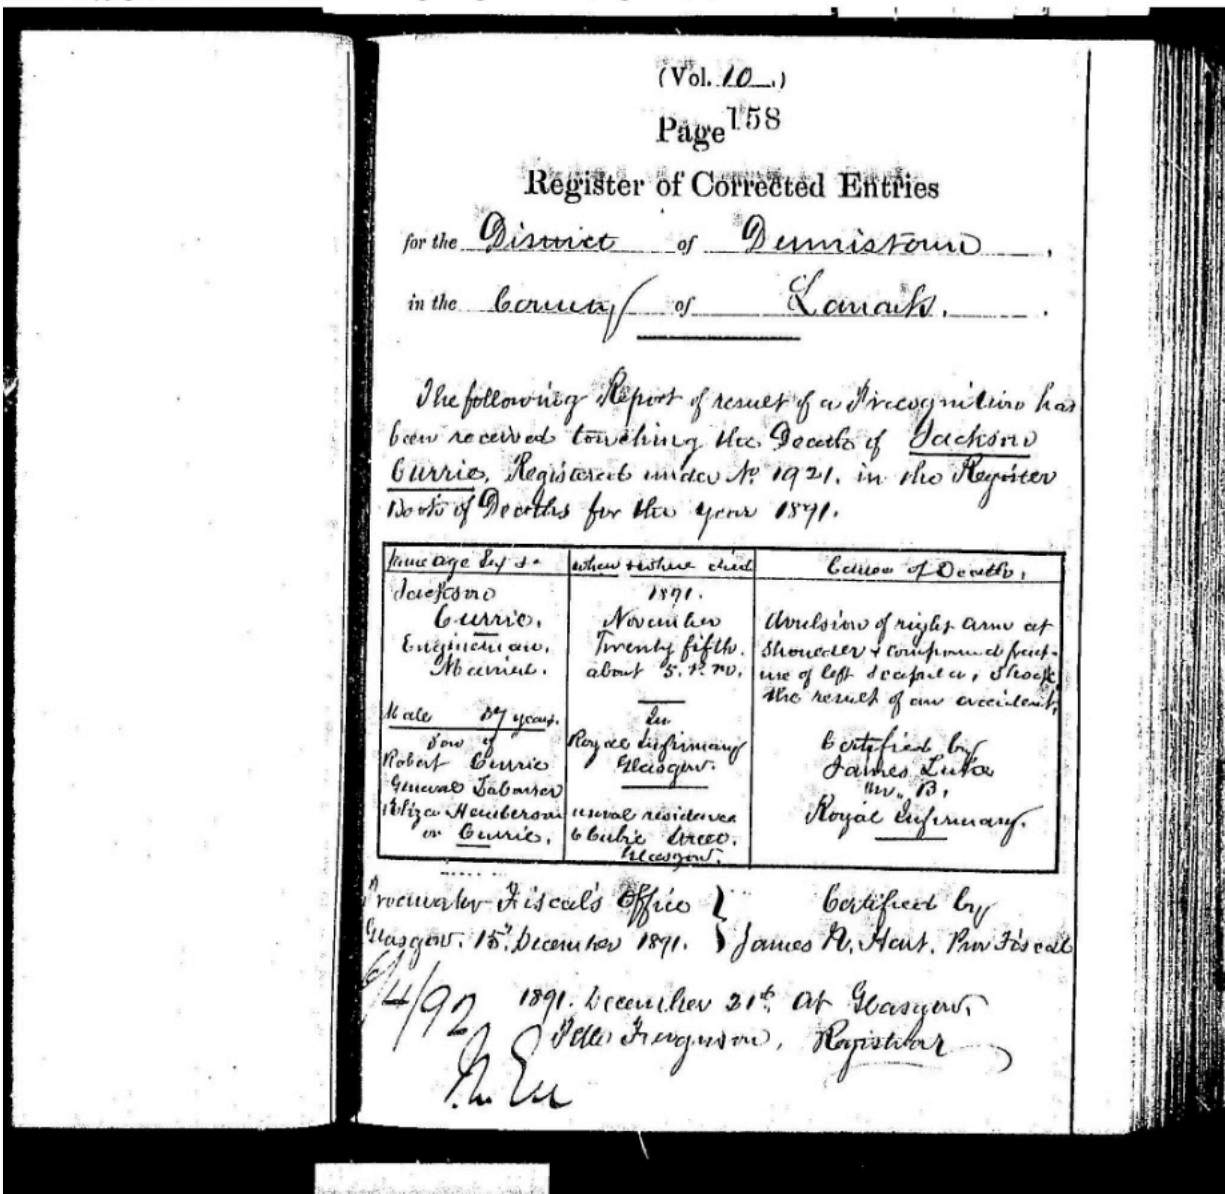 (Vol. 10.)
Page 158
Register of Corrected Entries
for the District of Dennistoun,
in the County of Lanark.
The following Report of result of a Precognition has
been received touching the Death of Jackson
Currie, Registered under No 1921. in the Register
Book of Deaths for the year 1891.
Name age Sex &c
Jackson
Currie.
Engineman.
Married.
Male 57 years.
Son of
Robert Currie
General Labourer
Eliza Henderson
or Currie.
when & where died
1891.
November
Twenty fifth.
about 5. P.M.
In
Royal Infirmary
Glasgow.
usual residence
Street.
Glasgow.
Cause of Death.
Avulsion of right arm at
Shoulder & compound fract-
ure of left scapula, Shock,
the result of an accident,
Certified by
James
M. B.
Royal Infirmary.
Procurator Fiscal's Office } Certified by
Glasgow. 15th December 1891. } James N. Hart. Pro Fiscal
1891. December 21st. At Glasgow.
Ferguson, Registrar
/4/92